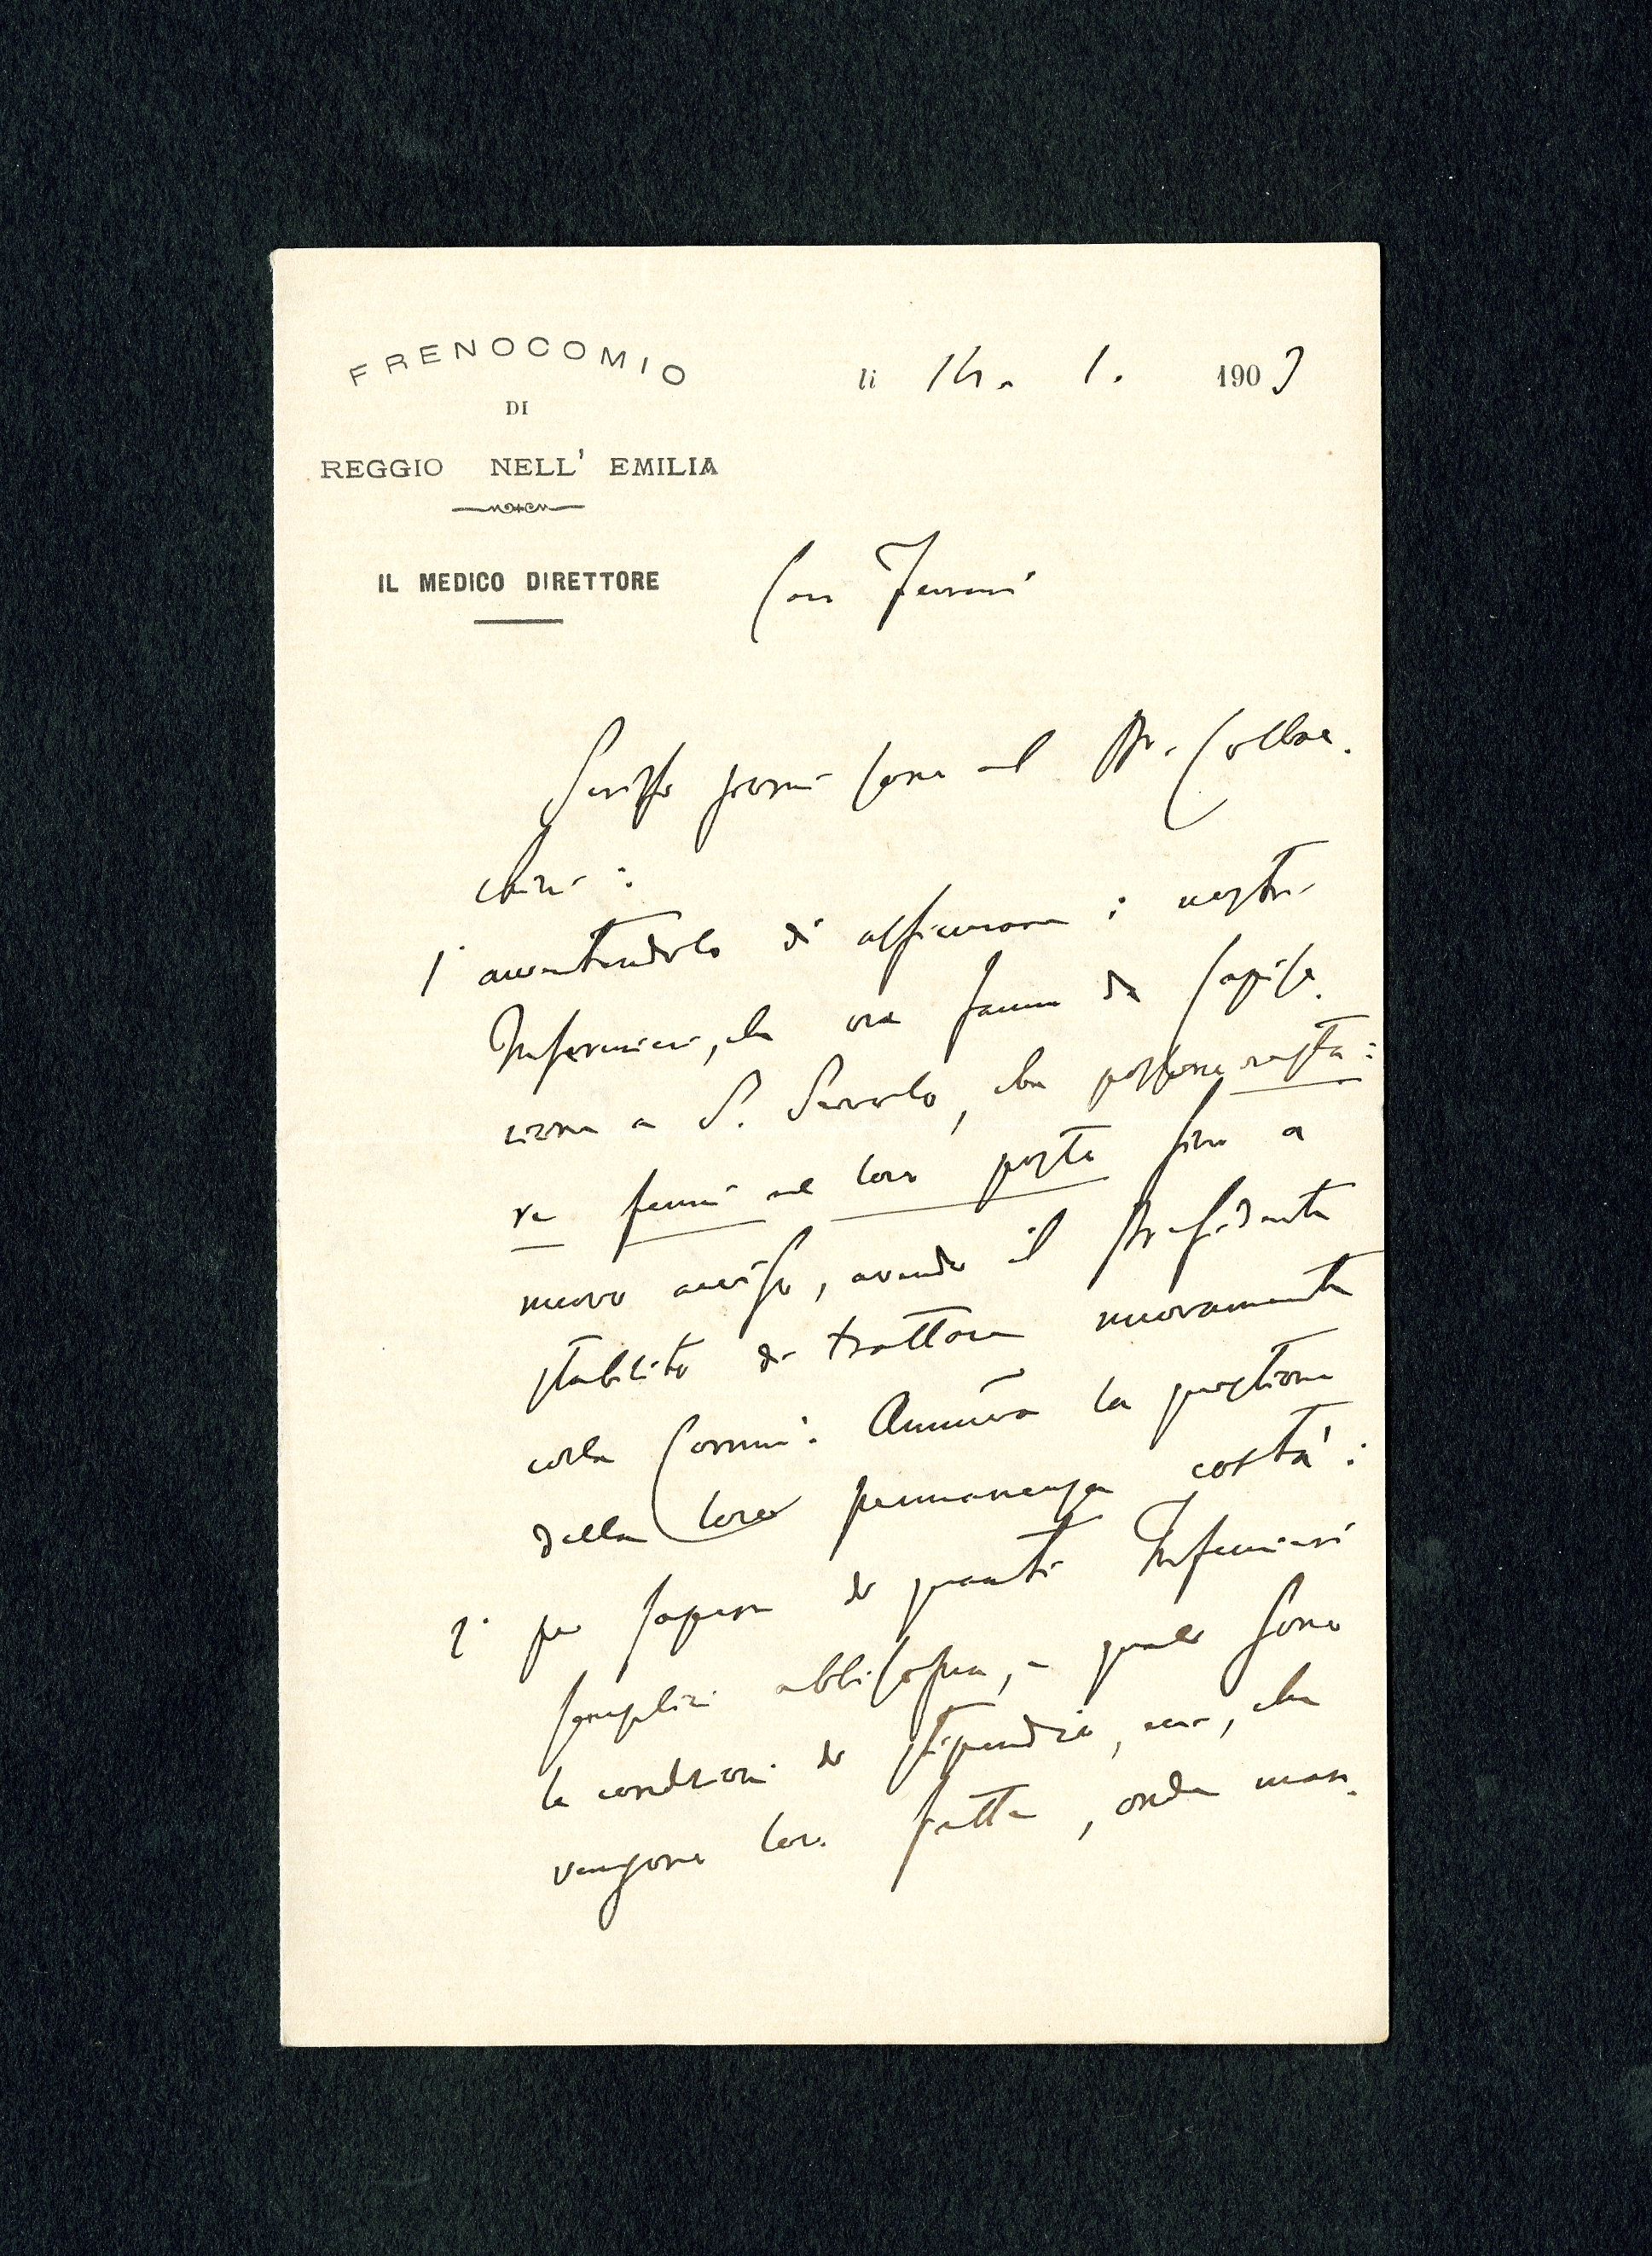 FRENOCOMIO
DI
REGGIO NELL' EMILIA
IL MEDICO DIRETTORE
li 14. 1. 1903
Caro Ferrari
Scrissi sera al Dr. Collea.
chini:
1° autentandolo di assicurare i nostri
Infermieri, che ora fanno da Capise.
zione a S. Servolo, che possono resta:
re fermi al loro posto fino a
nuovo avviso, avendo il Presidente
stabilito di trattare nuovamente
colla Commi: Amm.va la questione
della loro permanenza costà:
2° per sapere di quanti Infermieri
semplici abbisogna, e quali sono
le condizioni di stipendio, ecc., che
vengono loro fatte, onde man.